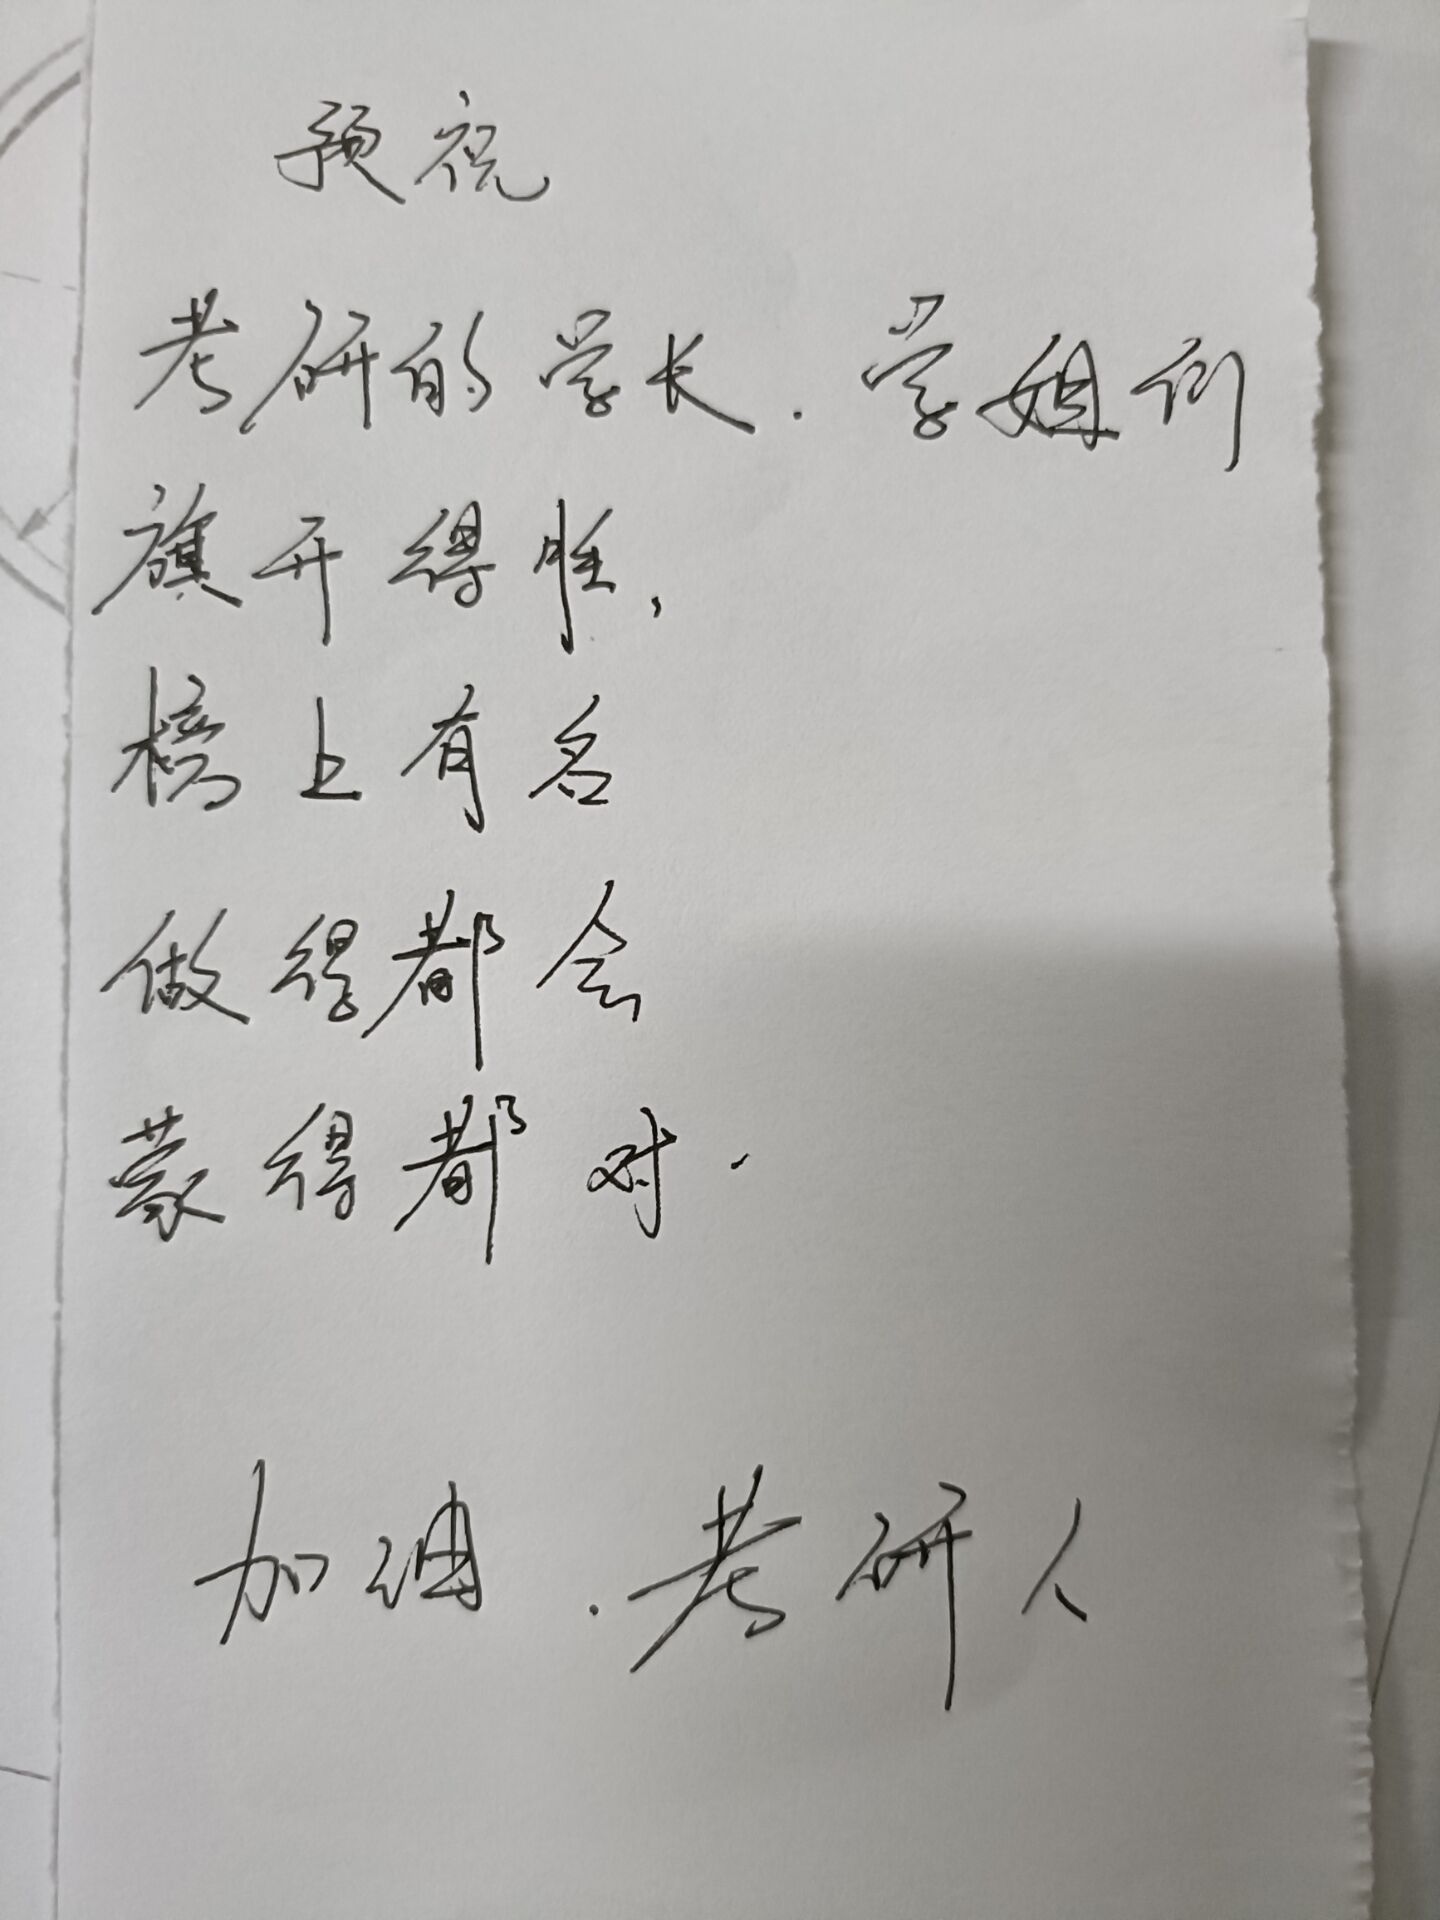 预祝
考研的学长.学姐们
旗开得胜,
榜上有名
做得都会
蒙得都对.
加油.考研人